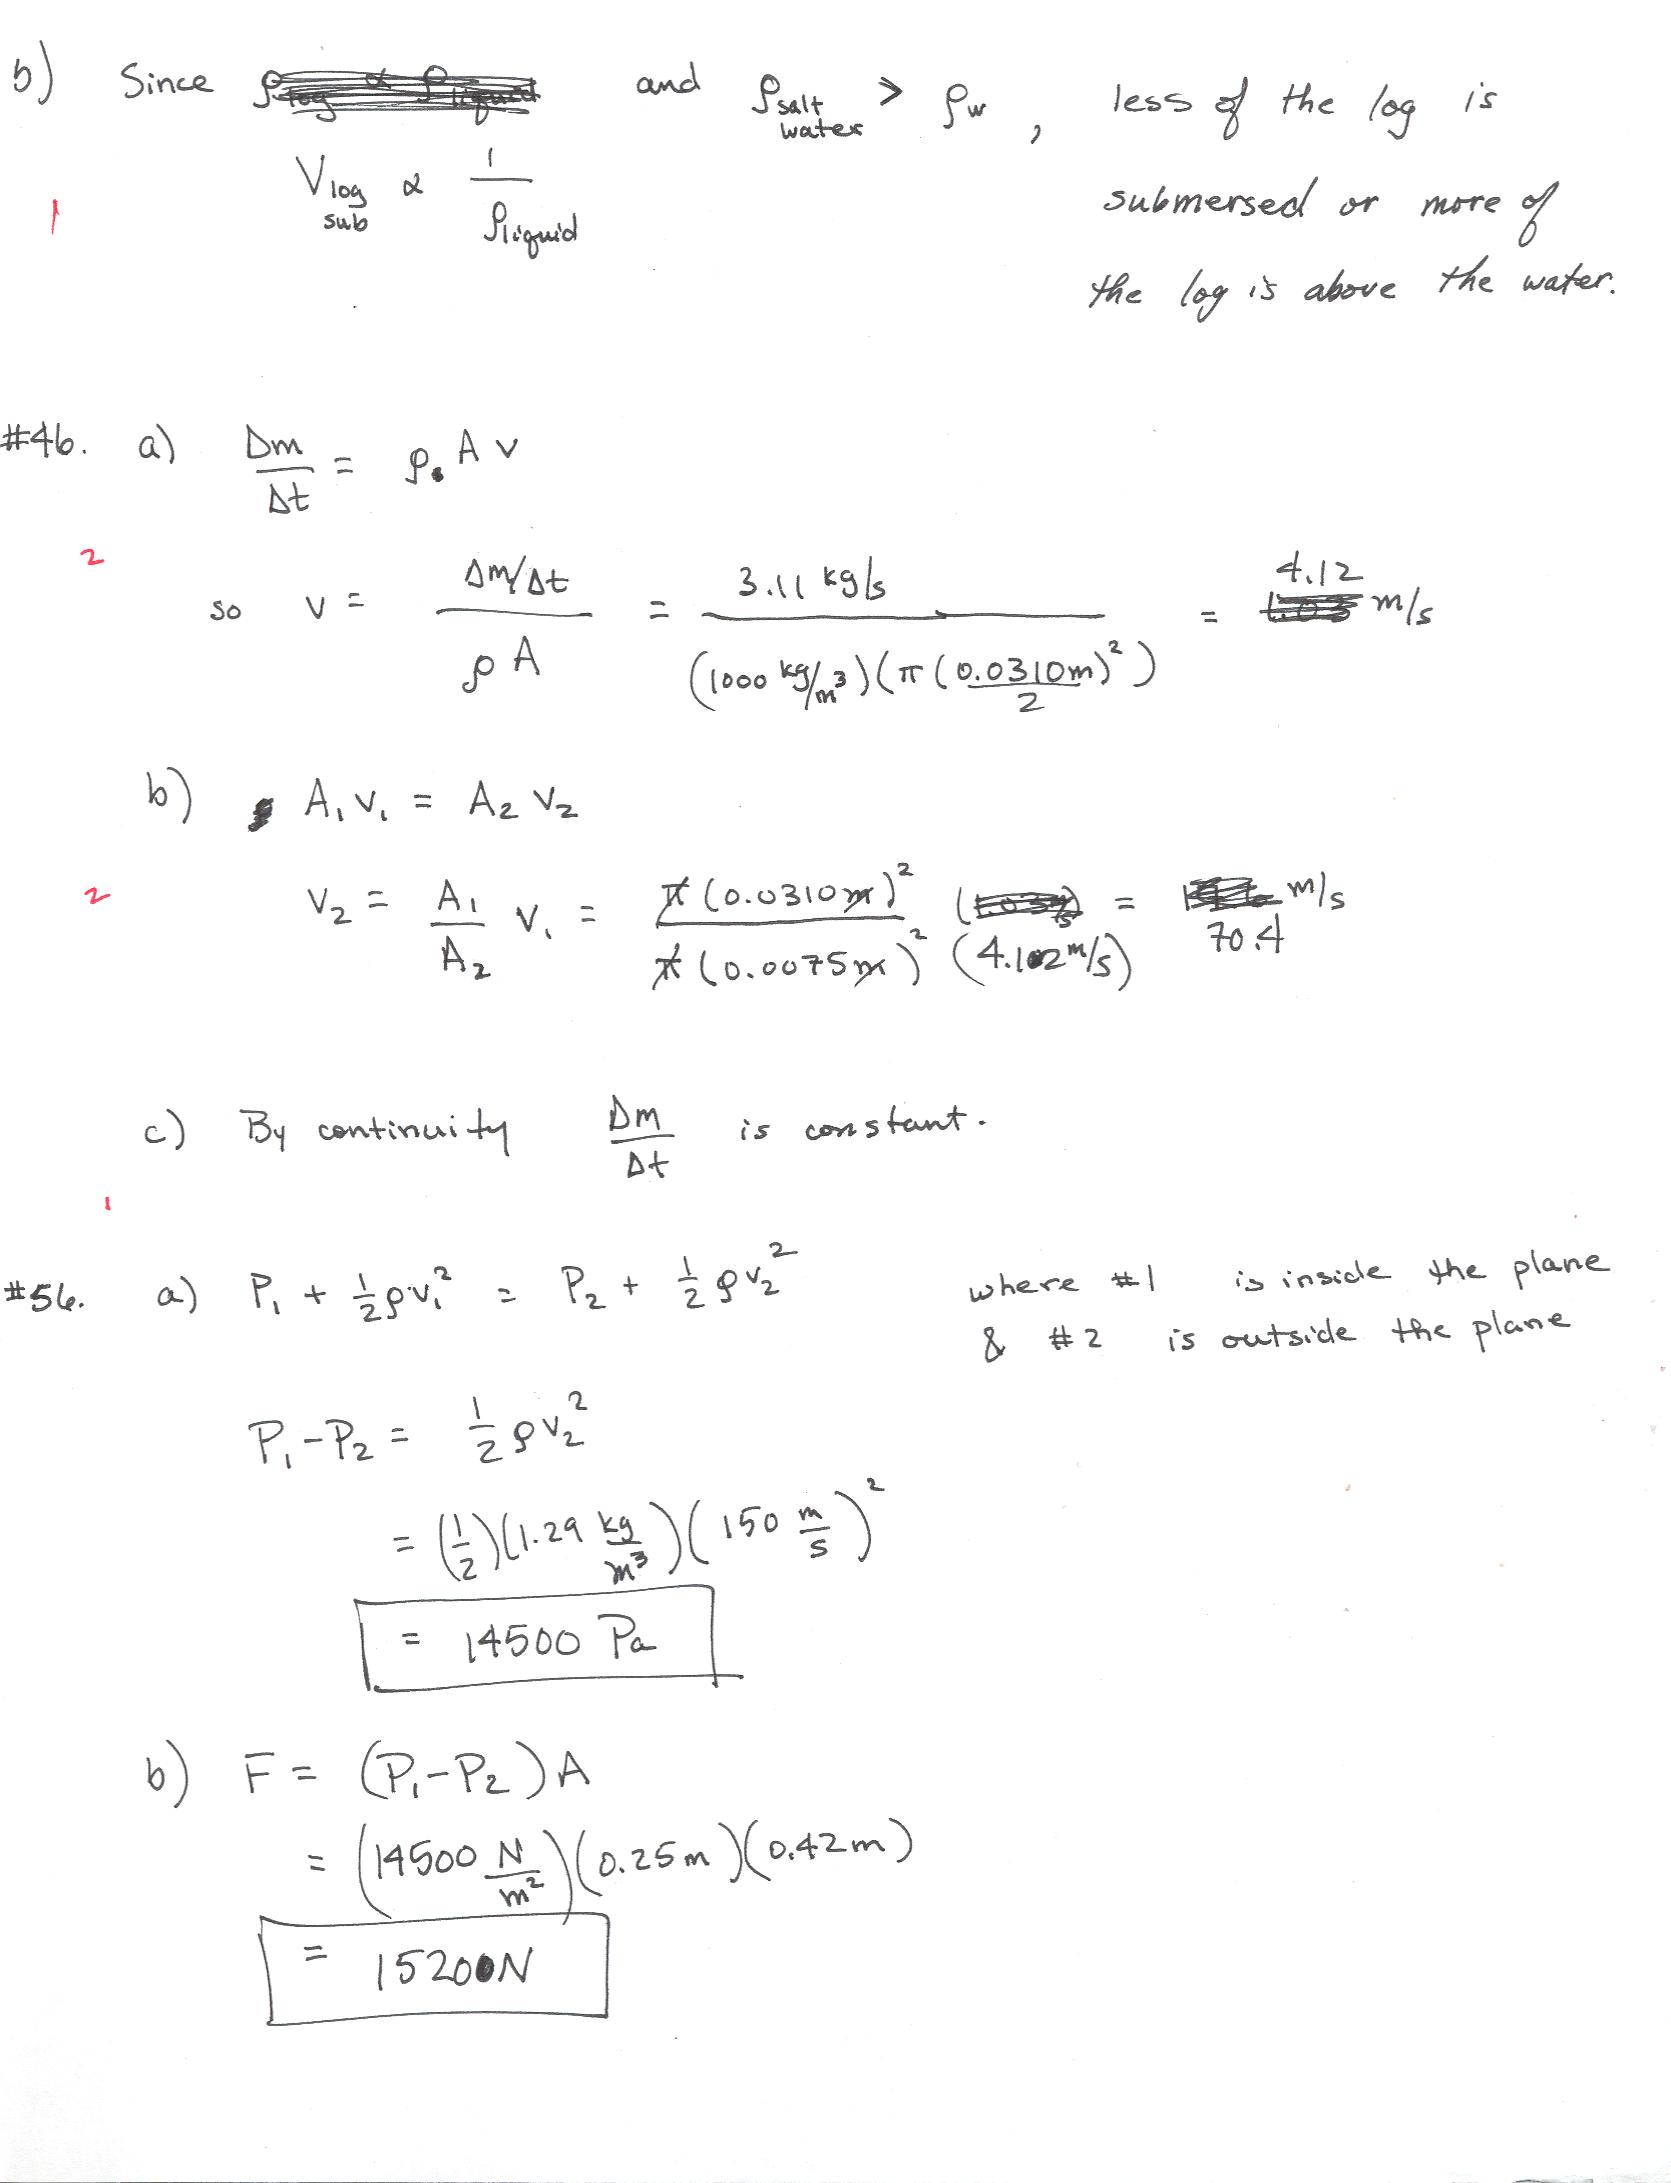 b) Since ρlog α ρliquid and ρsalt water > ρw , less of the log is
1 Vlog sub α 1/ρliquid submersed or more of
the log is above the water.
#46. a) Δm/Δt = ρ A v
2
so v = (Δm/Δt)/(ρ A) = 3.11 kg/s / (1000 kg/m³)(π(0.0310m/2)²) = 4.12 1.03 m/s
b) A₁ v₁ = A₂ v₂
2 v₂ = A₁/A₂ v₁ = π(0.0310m)²/π(0.0075m)² (4.12 m/s) = 70.4 m/s
c) By continuity Δm/Δt is constant.
1
#56. a) P₁ + ½ρv₁² = P₂ + ½ρv₂² where #1 is inside the plane
& #2 is outside the plane
P₁-P₂ = ½ρv₂²
= (½)(1.29 kg/m³)(150 m/s)²
= 14500 Pa
b) F = (P₁-P₂)A
= (14500 N/m²)(0.25m)(0.42m)
= 1520 N